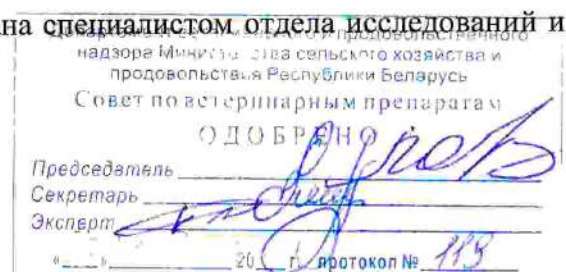 на специалистом отдела исследований и
продовольственного
надзора Министерства сельского хозяйства и
продовольствия Республики Беларусь
Совет по ветеринарным препаратам
ОДОБРЕНО
Председатель
Секретарь
Эксперт
« » 20 г. протокол № 119